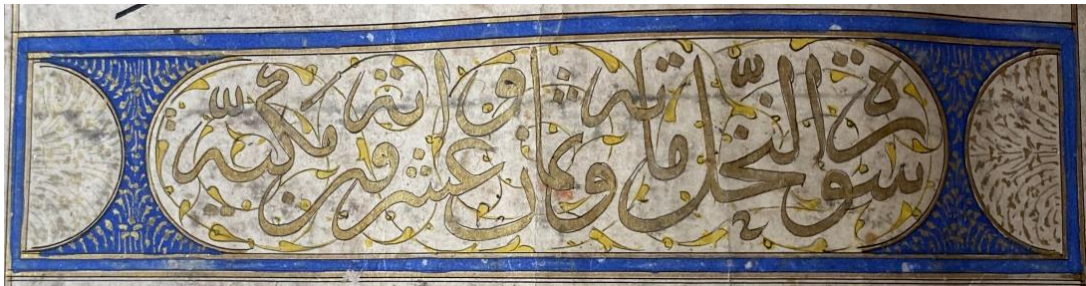 سورة النّحل مائة وثمان وعشرون اية مكيّة